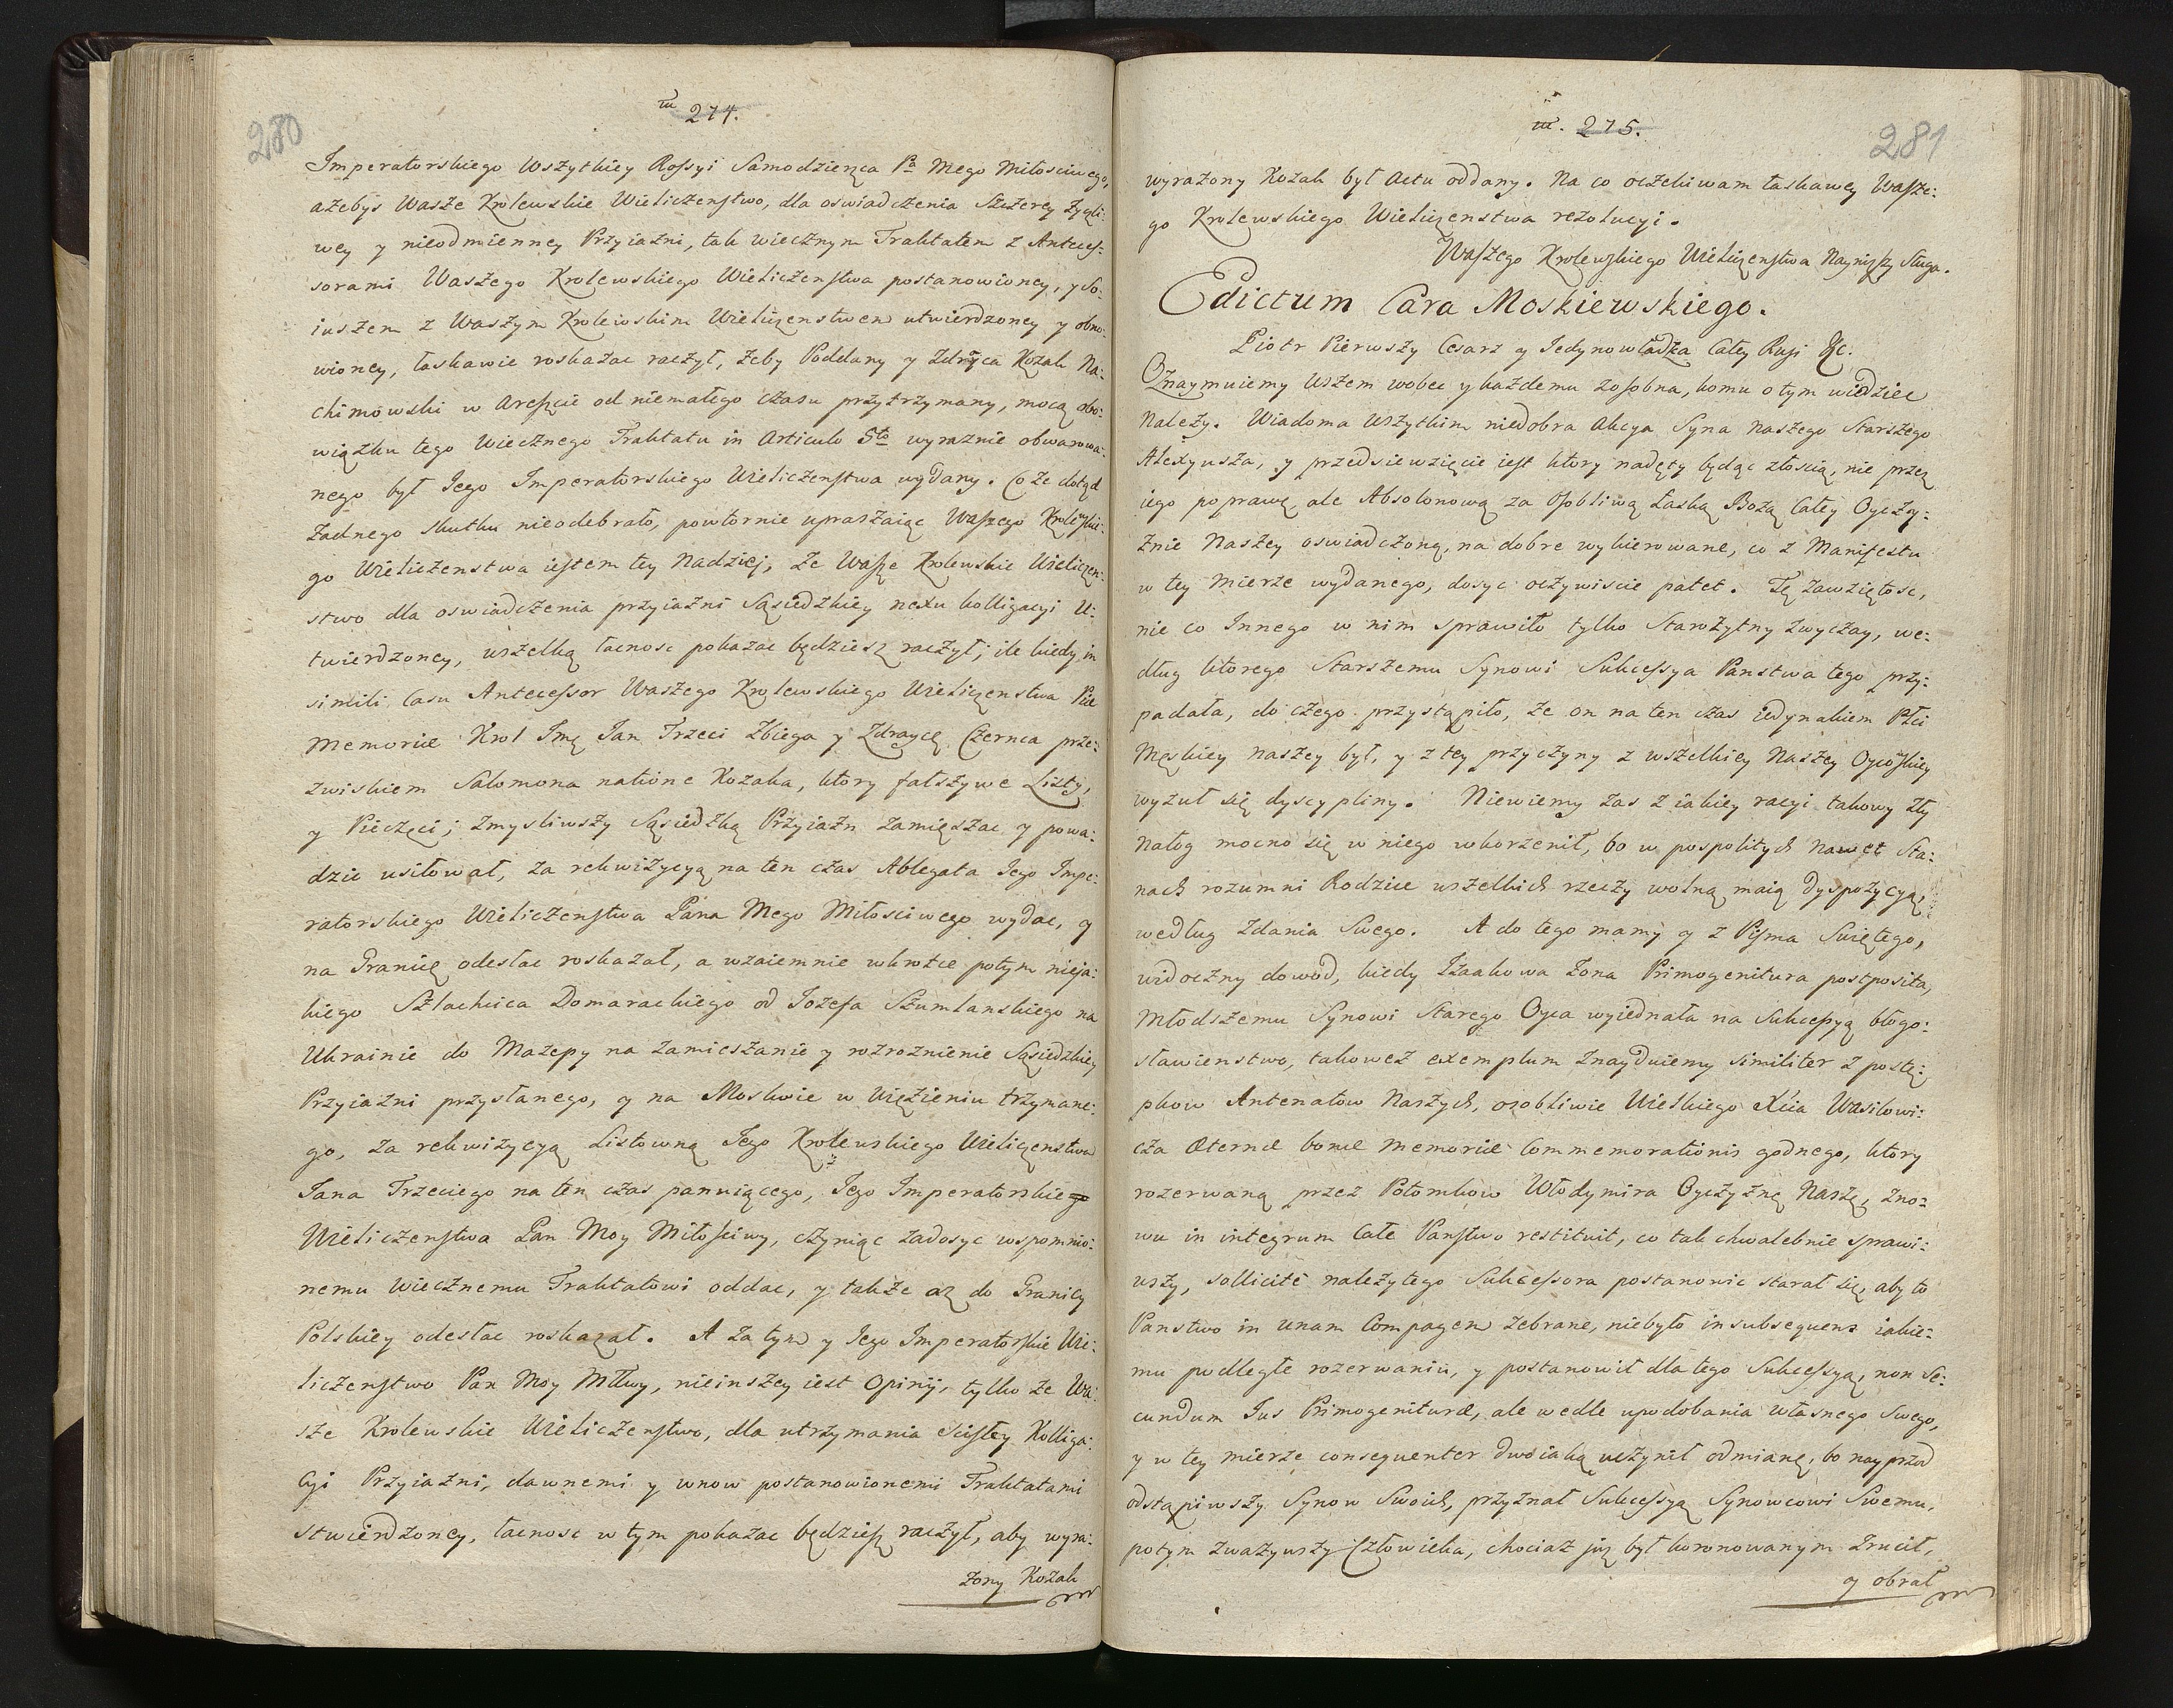 280
274.
Imperatorskiego Wszytkiey Rossyi Samodzierzca Pa Mego Miłosciwego,
ażebyś Wasze Krolewskie Wieliczenstwo, dla oswiadczenia Szczerey życzli:
wey y nieodmienney Przyiazni, tak wiecznym Traktatem z Anteces:
sorami Waszego Krolewskiego Wieliczenstwa postanowioney, y So:
iuszem z Waszym Krolewskim Wieliczenstwem utwierdzoney y obno:
wioney, łaskawie roskazac raczył, żeby Poddany y Zdrayca Kozak Na:
chimowski w Areszcie od niemałego czasu przytrzymany, mocą obo:
wiązku tego Wiecznego Traktatu in Articulo 5to wyraznie obwarowa:
nego był Jego Imperatorskiego Wieliczenstwa wydany. Co że dotąd
żadnego skutku nieodebrało, powtornie upraszaiąc Waszego Krolewskie:
go Wieliczenstwa iestem tey Nadziej, że Wasze Krolewskie Wieliczen:
stwo dla oswiadczenia przyiazni Sąsiedzkiey nexu kolligacyi U:
twierdzoney, wszelką łacnosc pokazac będziesz raczył; ile kiedy in
simili Casu Antecessor Waszego Krolewskiego Wieliczenstwa Piæ
Memoriæ Krol Jmę Jan Trzeci Zbiega y Zdraycę Czernca prze:
zwiskiem Salomona natione Kozaka, ktory fałszywe Listy,
y Pieczęci; zmysliwszy Sąsiedzką Przyiazn zamięszac y powa:
dzic usiłował, za rekwizycyą na ten czas Ablegata Jego Impe:
ratorskiego Wieliczenstwa Pana Mego Miłosciwego wydac, y
na Granicę odesłac roskazał, a wzaiemnie wkrotce potym nieja:
kiego Szlachcica Domarackiego od Jozefa Szumlanskiego na
Ukrainie do Mazepy na zamieszanie y rozroznienie Sąsiedzkiey
Przyiazni przysłanego, y na Moskwie w Więzieniu trzymane:
go, za rekwizycyą Listowną Jego Krolewskiego Wieliczenstwa
Jana Trzeciego na ten czas panuiącego, Jego Imperatorskiego
Wieliczenstwa Pan Moy Miłosciwy, czyniąc zadosyc wspomnio:
nemu Wiecznemu Traktatowi oddac, y także aż do Granicy
Polskiey odesłac roskazał. A za tym y Jego Imperatorskie Wie:
liczenstwo Pan Moy Młwy, nieinszey iest Opinij, tylko że Wa:
sze Krolewskie Wieliczenstwo, dla utrzymania scisłey Kolliga:
cyi Przyiazni, dawnemi y wnow postanowionemi Traktatami
stwierdzoney, łacnosc w tym pokazac będziesz raczył, aby wyra:
żony Kozak
281
275.
wyrażony Kozak był Actu oddany. Na co oczekiwam łaskawey Wasze:
go Krolewskiego Wieliczenstwa rezolucyi.
Waszego Krolewskiego Wieliczenstwa Nayniższy Sługa.
Edictum Cara Moskiewskiego.
Piotr Pierwszy Cesarz y Jedynowładza Całey Rusi &c.
Oznaymuiemy Wszem wobec y każdemu zosobna, komu o tym wiedziec
Należy. Wiadoma Wszytkim niedobra Akcya Syna Naszego Starszego
Alexyusza, y przedsiewzięcie iest ktory nadęty będąc złoscią, nie przez
iego poprawę, ale Absolonową za osobliwą Łaską Bożą Całey Oyczy:
znie Naszey oswiadczoną, na dobre wykierowane, co z Manifestu
w tey mierze wydanego, dosyc oczywiscie patet. Tę zawziętosc,
nie co Innego w nim sprawiło tylko Starożytny zwyczay, we:
dług ktorego Starszemu Synowi Sukcessya Panstwa tego przy:
padała, do czego przystąpiło, że on na ten czas iedynakiem Płci
Męskiey naszey był, y z tey przyczyny z wszelkiey Naszey Oycowskiey
wyzuł się dyscypliny. Niewiemy zas z iakiey racyi takowy zły
nałog mocno się w niego wkorzenił, bo w pospolitych nawet Sta:
nach rozumni Rodzice wszelkich rzeczy wolną maią dyspozycyą,
według Zdania Swego. A do tego mamy y z Pisma Swiętego,
widoczny dowod, kiedy Izaakowa Zona Primogenitura postposita,
Młodszemu Synowi Starego Oyca wyiednała na Sukcessyą błogo:
sławienstwo, takoweż exemplum Znayduiemy similiter z postę:
pkow Antenatow Naszych, osobliwie Wielkiego Xcia Wasilowi:
cza Æternæ bonæ memoriæ Commemorationis godnego, ktory
rozerwaną przez Potomkow Włodymira Oyczyznę Naszę, zno:
wu in integrum Całe Panstwo restituit, co tak chwalebnie sprawi:
wszy, sollicitè należytego Sukcessora postanowic starał się, aby to
Panstwo in unam Compagem zebrane, niebyło insubsequens iakie:
mu podległe rozerwaniu, y postanowił dla tego Sukcessyą, non Se:
cundum Jus Primogenituræ, ale wedle upodobania własnego Swego,
y w tey mierze consequenter dwoiaką uczynił odmianę, bo nayprzod
odstąpiwszy Synow Swoich, przyznał Sukcessyą Synowcowi Swemu,
potym zważywszy Człowieka, chociaż już był koronowanym Zrucił,
y obrał